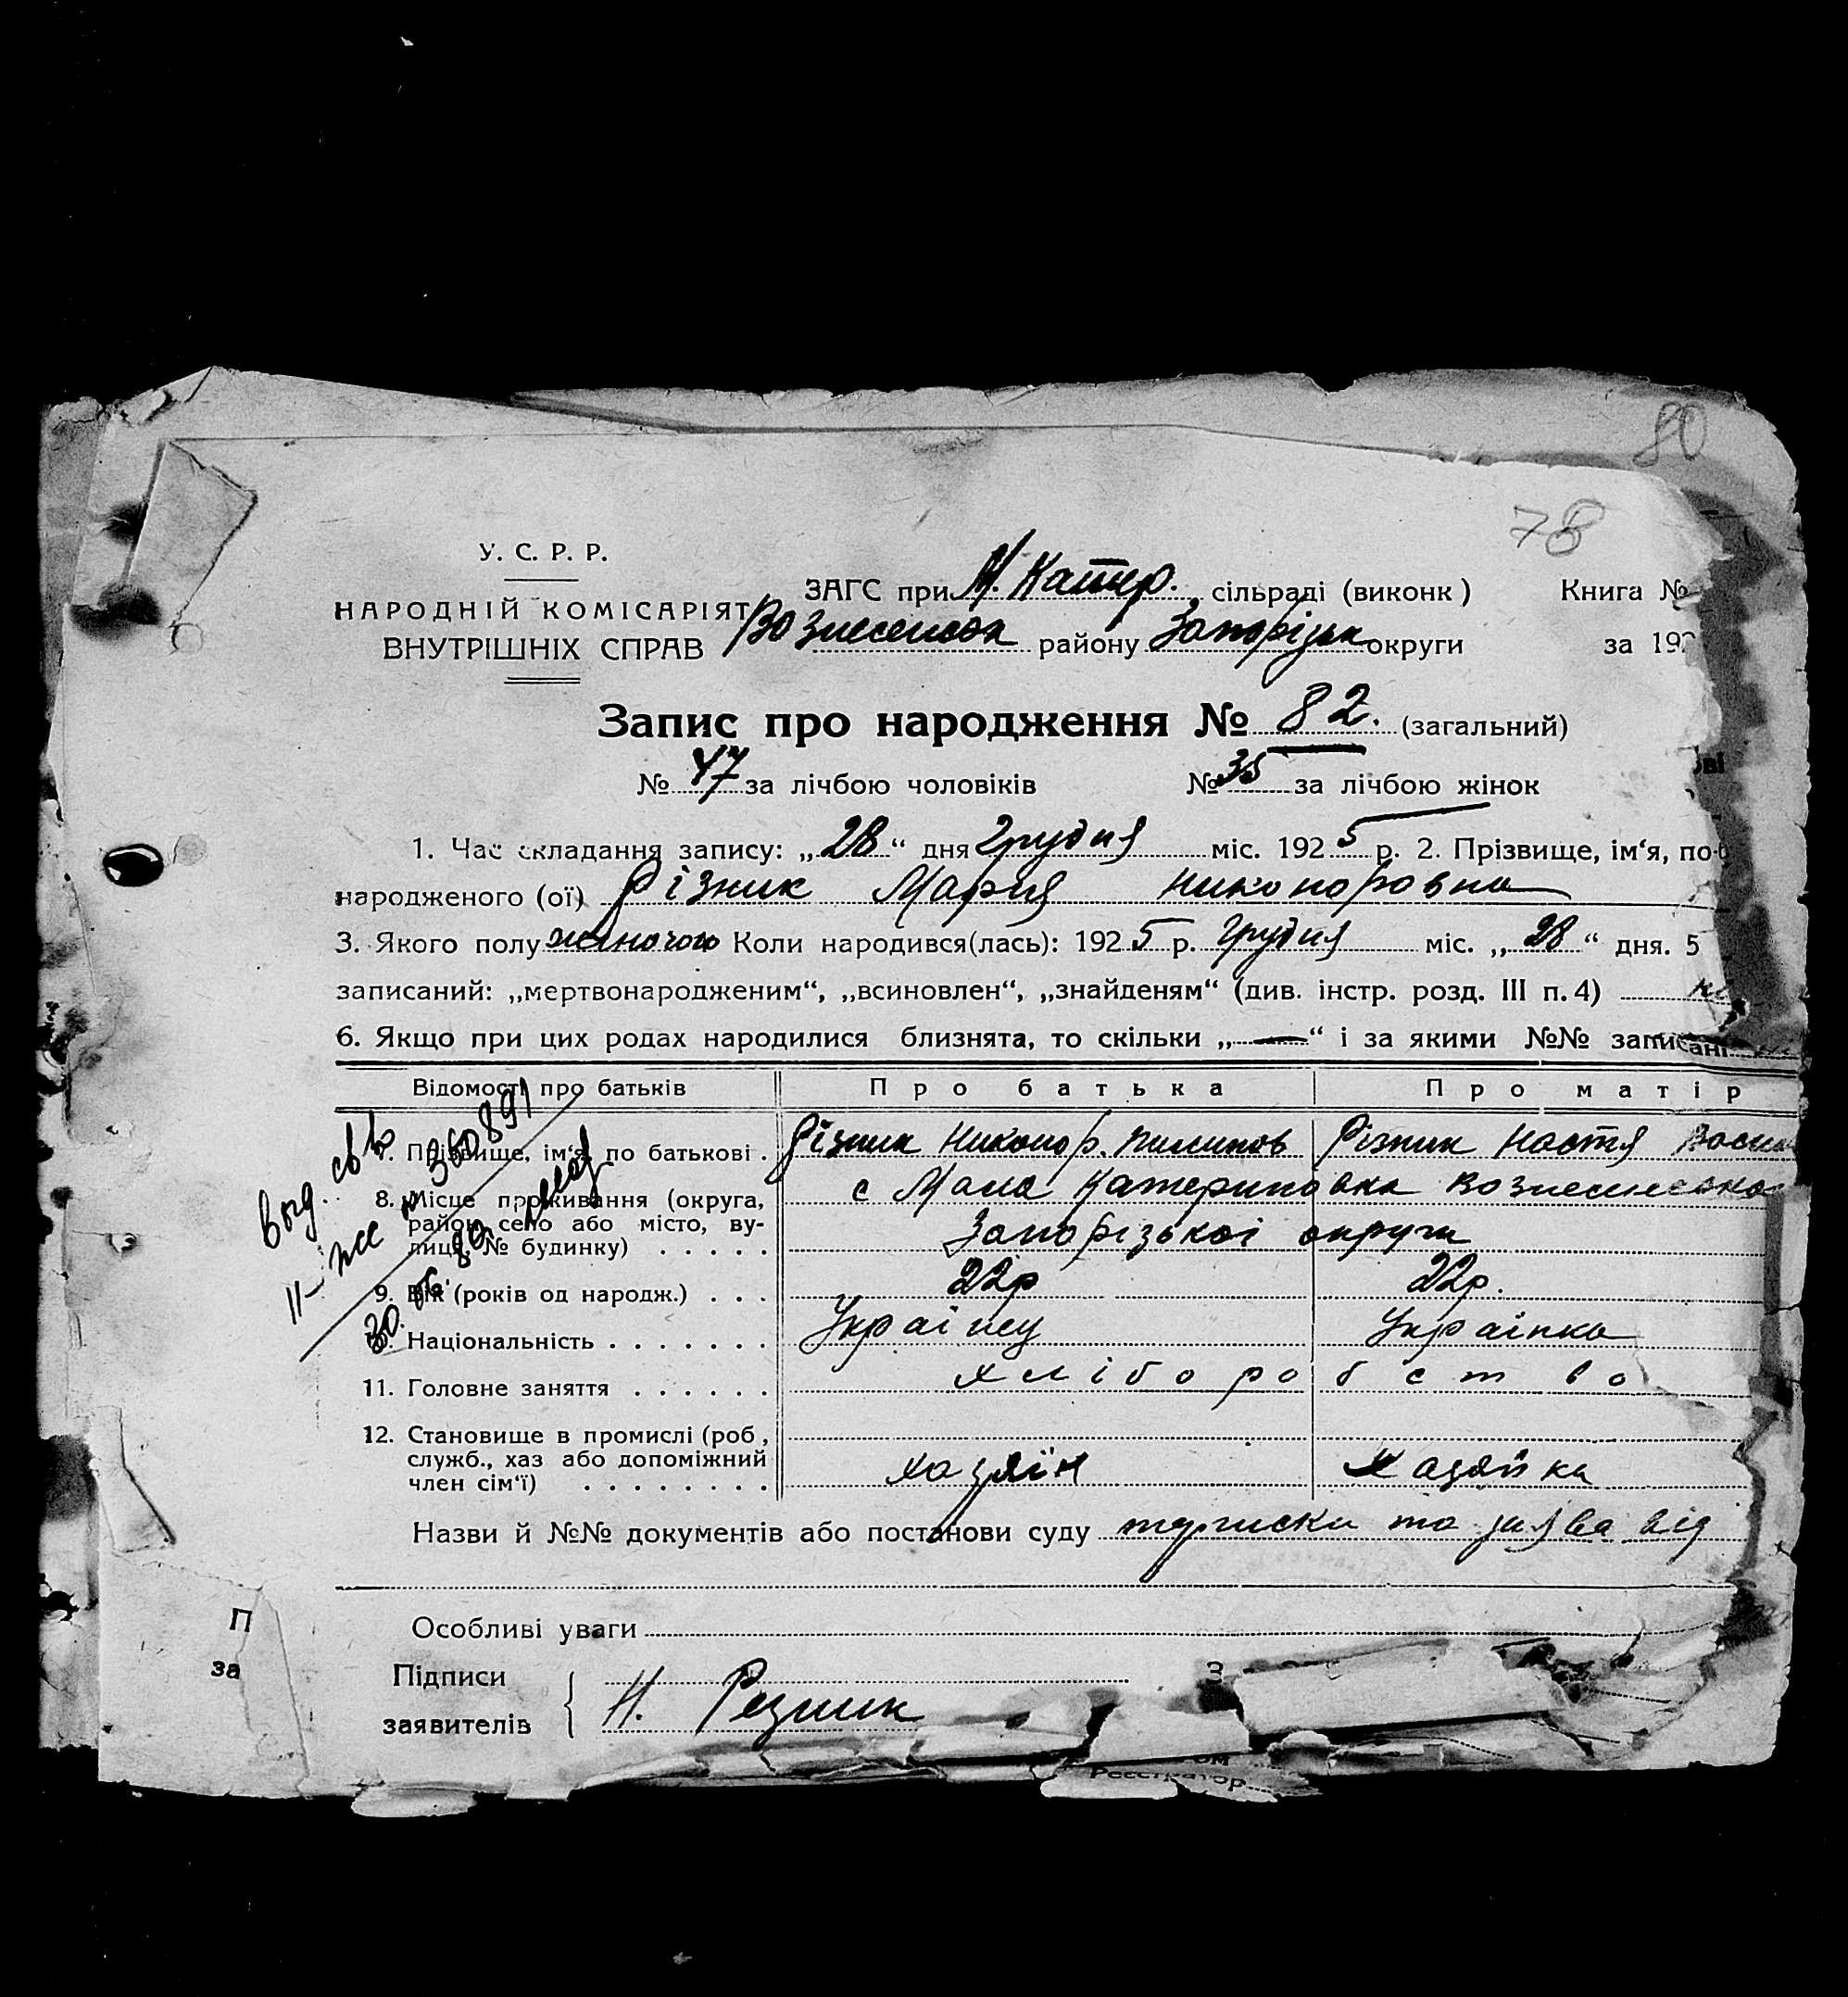 80
78
У. С. Р. Р.
НАРОДНІЙ КОМІСАРІЯТ
ВНУТРІШНІХ СПРАВ
ЗАГС при М. Катер. сільраді (виконк)
Книга №
Вознесенськ району Запорізьк округи
за 192
Запис про народження № 82. (загальний)
№ 47 за лічбою чоловіків № 35 за лічбою жінок
1. Час складання запису: „28“ дня Грудня міс. 1925 р. 2. Прізвище, ім‘я, по-б
народженого (ої) Різник Мария Никоноровна
3. Якого полу жіночого Коли народився(лась): 1925 р. Грудня міс. „28“ дня. 5
записаний: „мертвонародженим“, „всиновлен“, „знайденям“ (див. інстр. розд. III п. 4)
6. Якщо при цих родах народилися близнята, то скільки „—“ і за якими №№ записані
Відомості про батьків Про батька Про матір
7. Прізвище, ім‘я, по батькові . Різник Никонор. Пилипов Різник Настя Васил
8. Місце проживання (округа, с Мала Катериновка Вознесенсько
район, село або місто, ву-
лиця, № будинку) . . . . . Запорізької округи
9. Вік (років од народж.) . . . 22р 22р.
Національність . . . . . . . Українец Українка
11. Головне заняття . . . . . . хліборобство
12. Становище в промислі (роб.,
служб., хаз або допоміжний
член сім‘ї) . . . . . . . . хазяїн хазяйка
Выд. св во
II-ЖС № 360891
30.
Назви й №№ документів або постанови суду та заява від
Особливі уваги
П
за
Підписи
заявителів
Н. Резник
Реєстратор